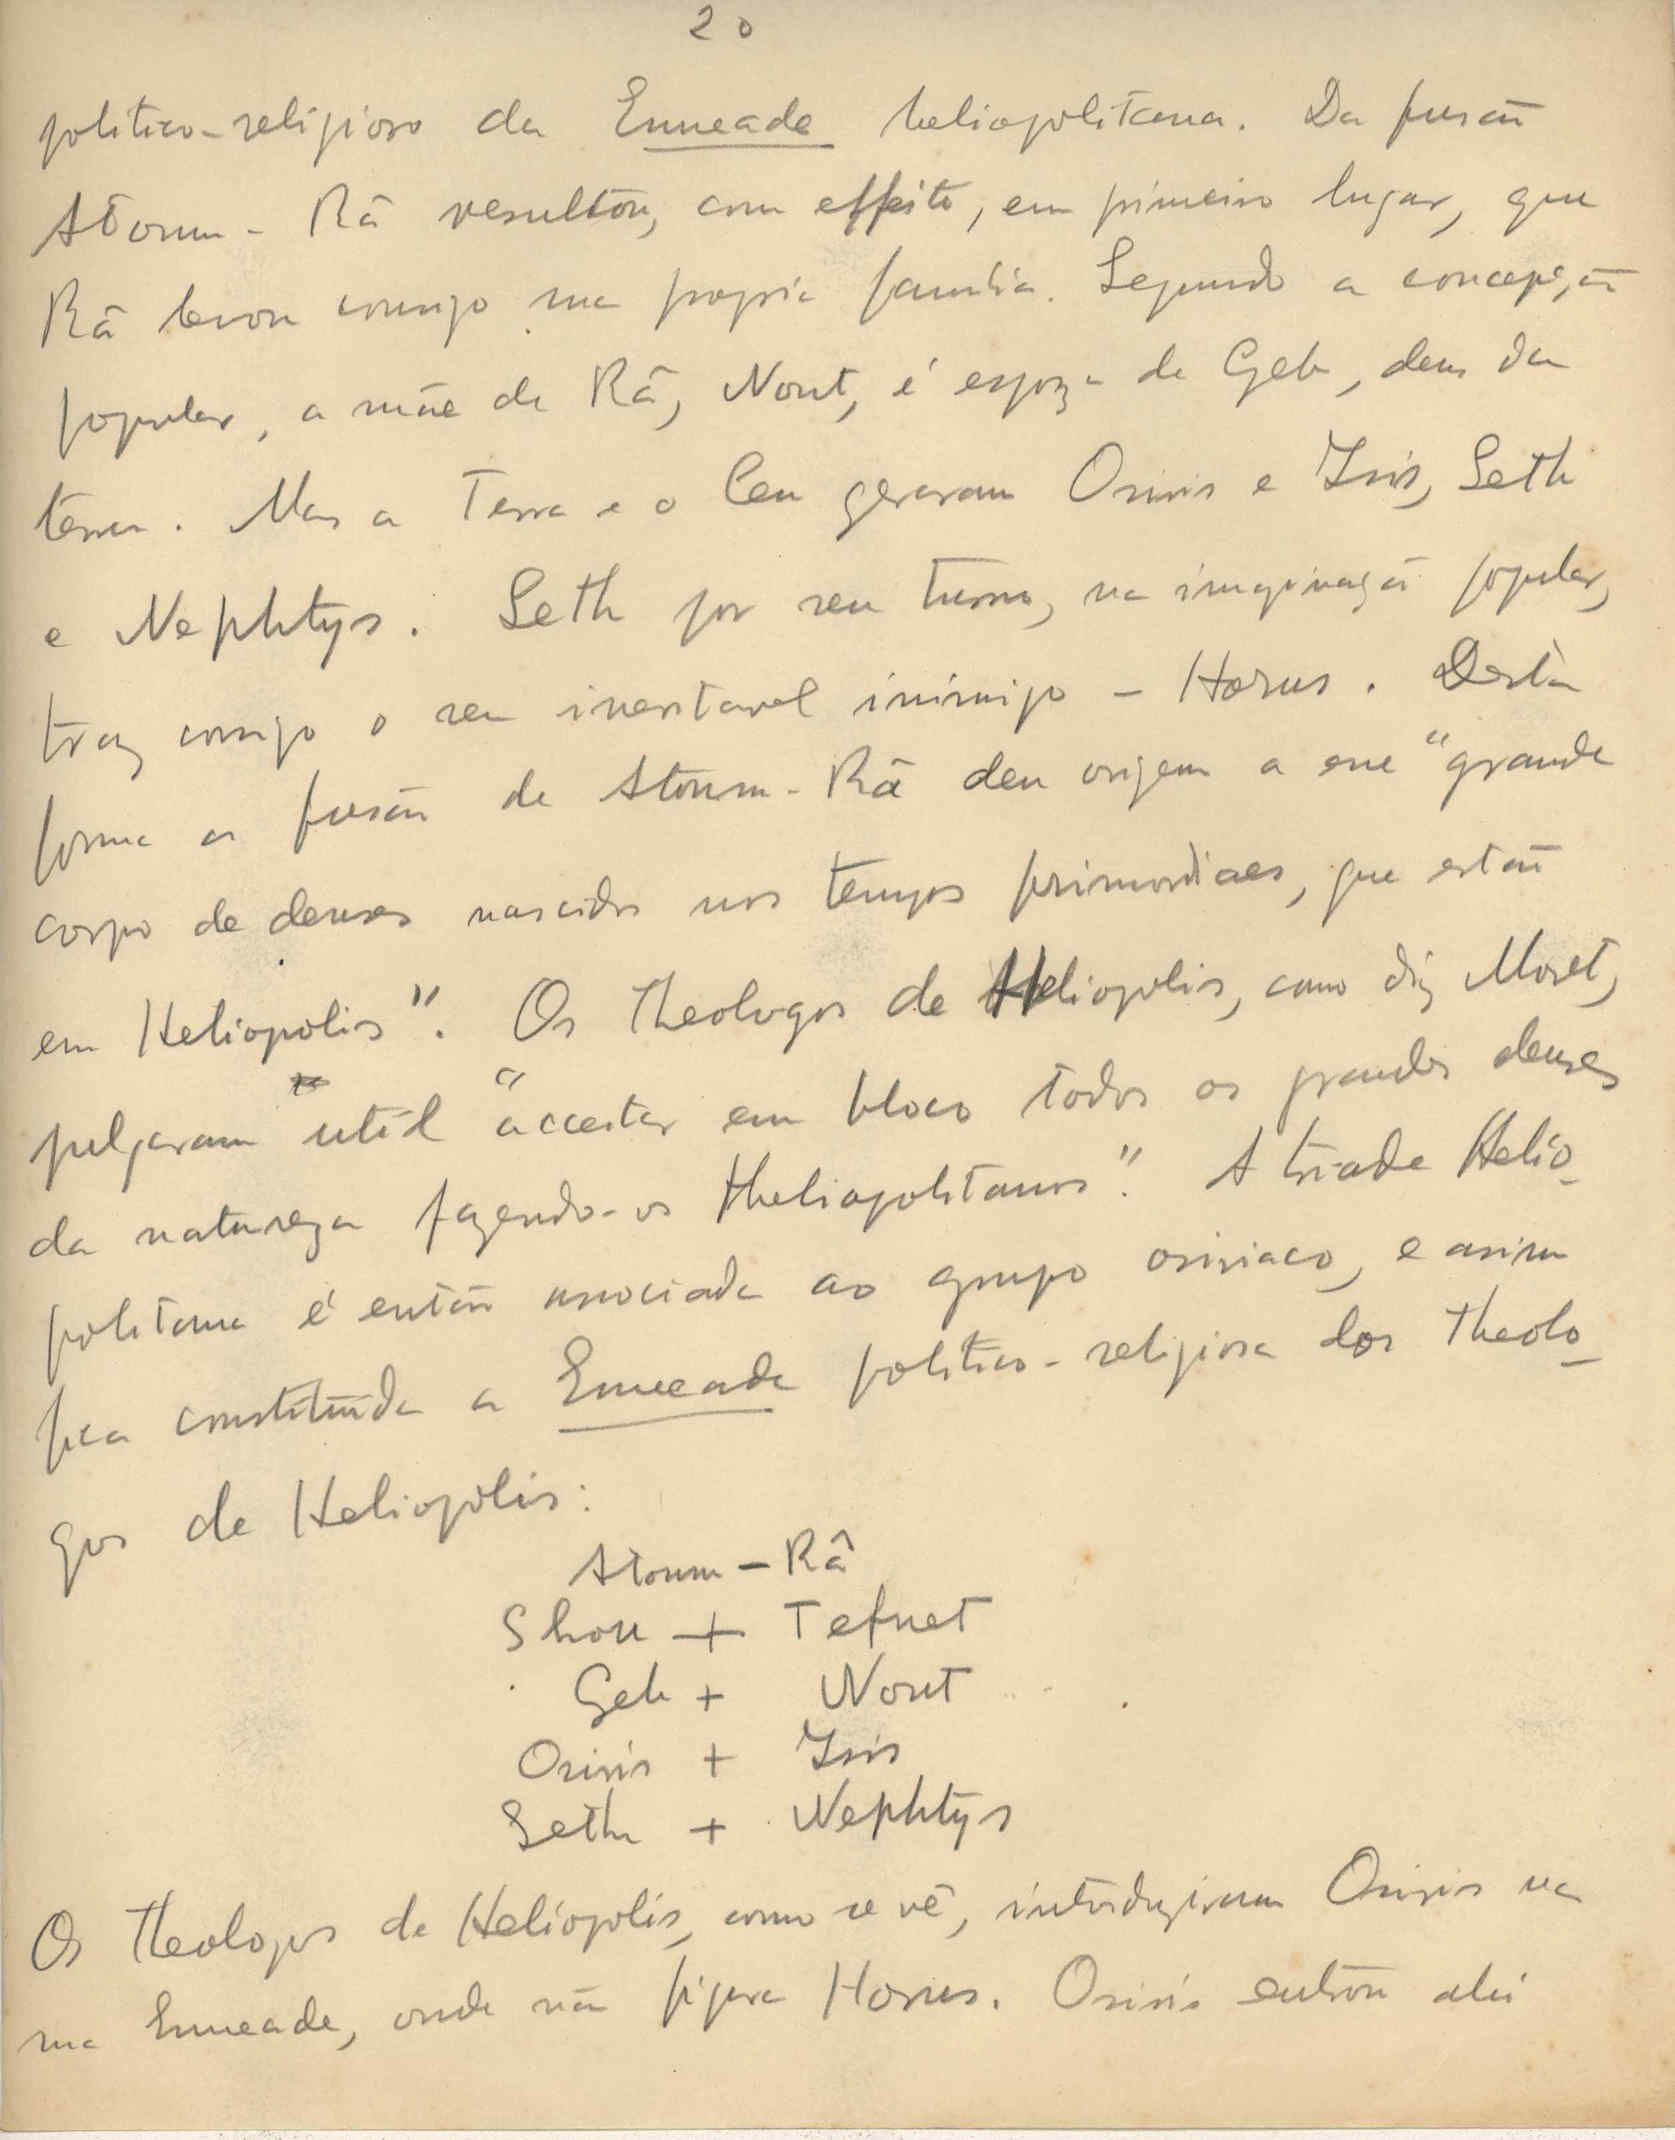 20
politico-religioso da Enneade heliopolitana. Da fusão
Atoum - Râ resultou, com effeito, em primeiro lugar, que
Râ levou comsigo sua propria familia. Segundo a concepção
popular, a mãe de Râ, Nout, é espoza de Geb, deus da
terra. Mas a Terra e o Ceu geraram Osiris e Isis, Seth
e Nephtys. Seth por seu turno, na imaginação popular,
traz comsigo o seu inevitavel inimigo - Horus. Desta
forma a fusão de Atoum-Râ deu origem a esse "grande
corpo de deuses nascidos nos tempos primordiaes, que estão
em Heliopolis". Os theologos de Heliopolis, como diz Moret,
julgaram util "acceitar em bloco todos os grandes deuses
da natureza fazendo-os heliopolitanos". A triade Helio-
politana é então associada ao grupo osiriaco, e assim
fica constituida a Enneade politico-religiosa dos theolo-
gos de Heliopolis:
Atoum - Râ
Shou + Tefnet
Geb + Nout
Osiris + Isis
Seth + Nephtys
Os theologos de Heliopolis, como se vê, introduziram Osiris na
sua Enneade, onde não figura Horus. Osiris entrou ahi